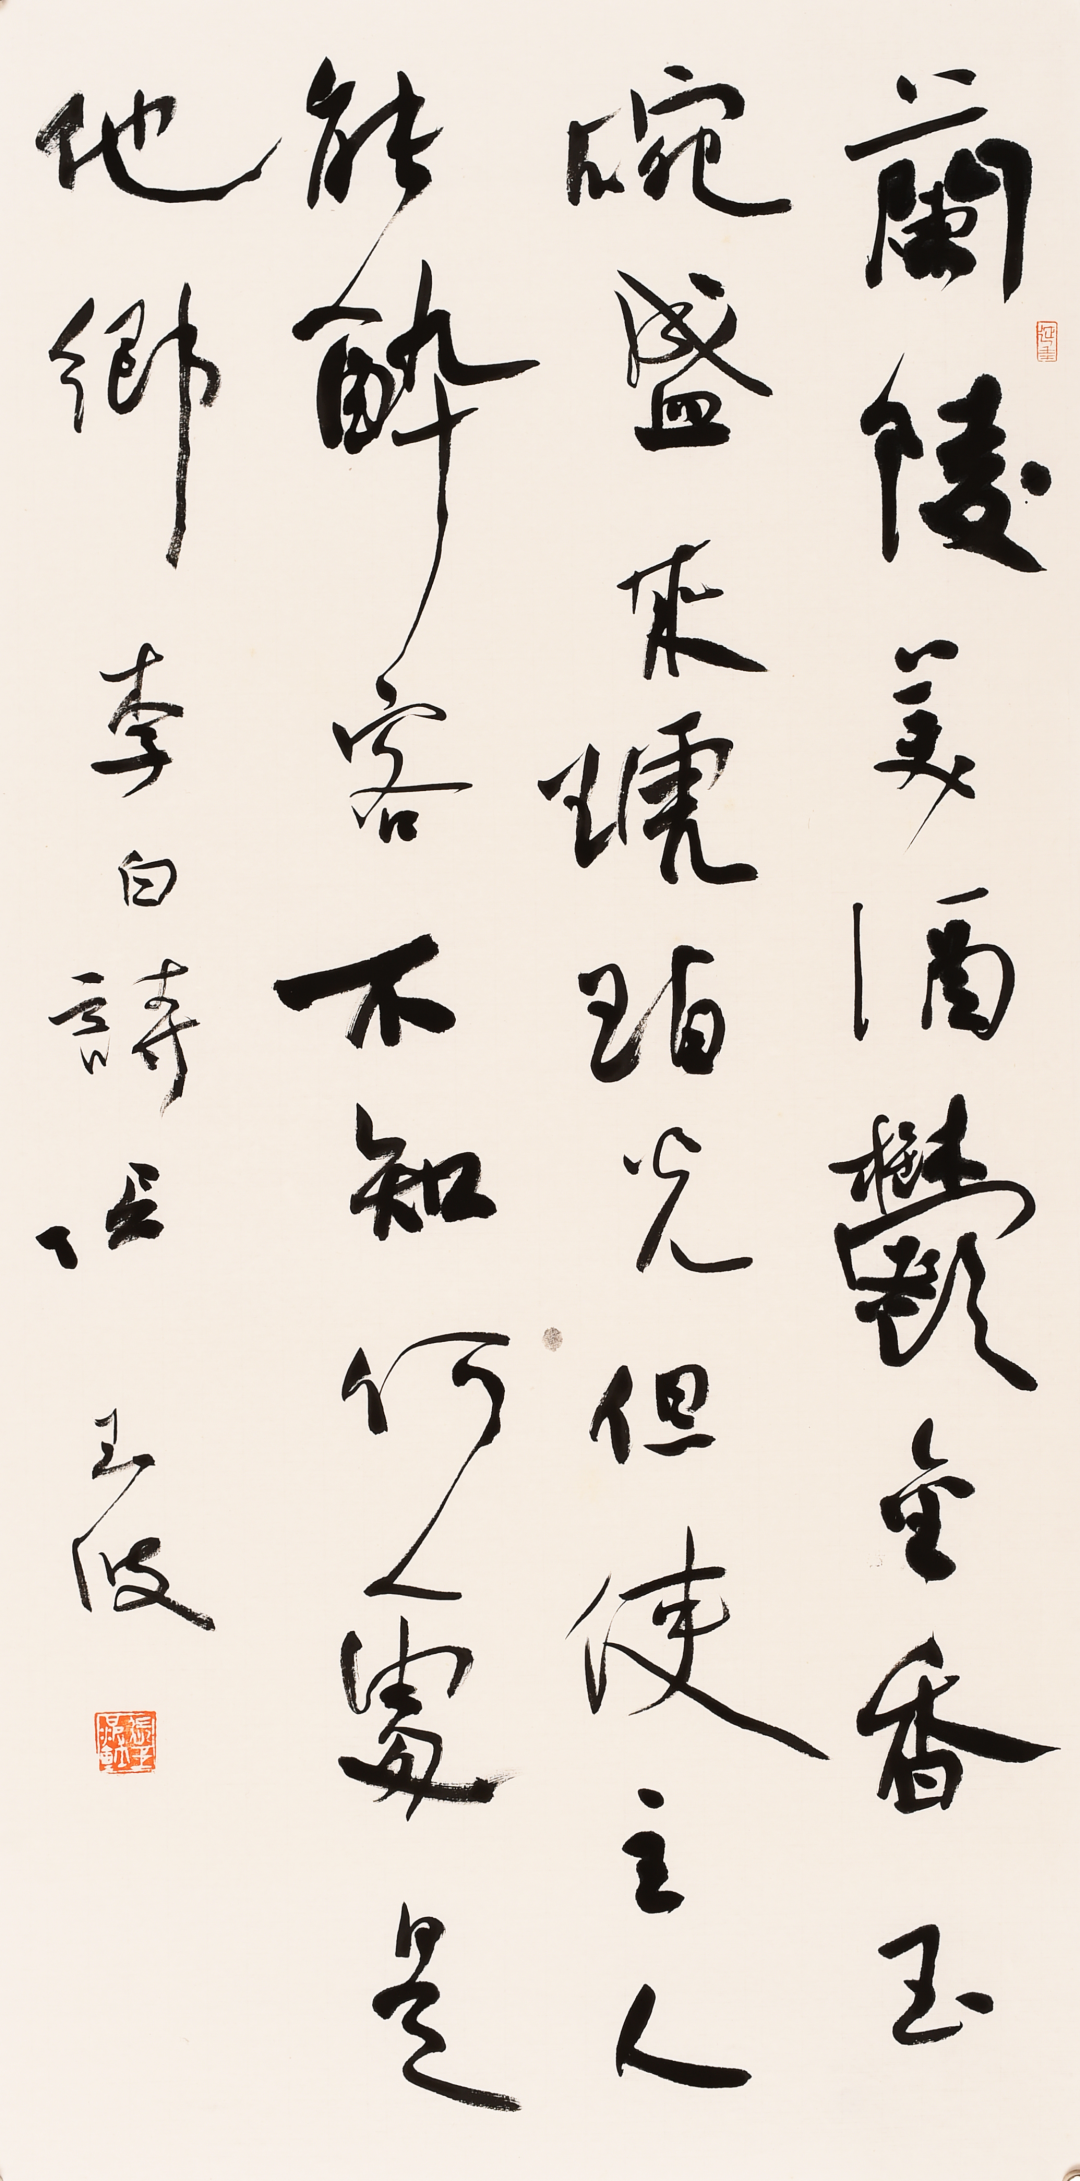 蘭陵美酒鬱金香玉
碗盛來琥珀光但使主人
能醉客不知何處是
他鄉 李白詩